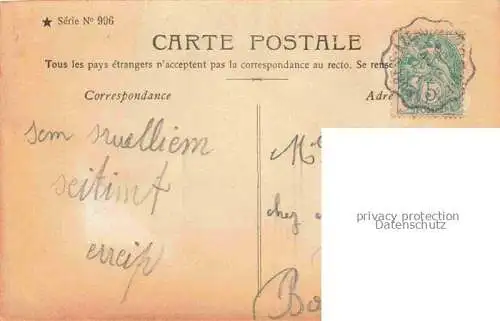 ★ Série Nº 996
CARTE POSTALE
Tous les pays étrangers n'acceptent pas la correspondance au recto. Se rense
Correspondance
Adre
sem sruelliem
seitimt
erreip
chez
privacy protection
Datenschutz